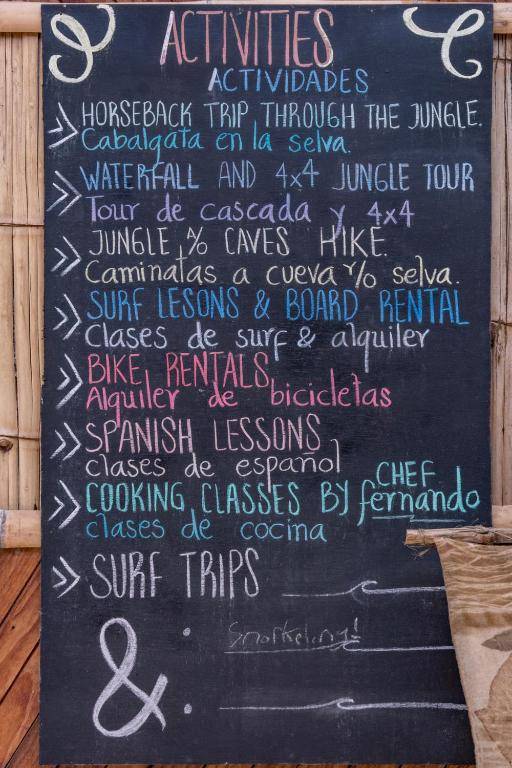 ACTIVITIES
ACTIVIDADES
HORSEBACK TRIP THROUGH THE JUNGLE.
Cabalgata en la selva.
WATERFALL AND 4x4 JUNGLE TOUR
Tour de cascada y 4x4
JUNGLE % CAVES HIKE.
Caminatas a cueva y/o selva.
SURF LESONS & BOARD RENTAL
Clases de surf & alquiler
BIKE RENTALS
Alquiler de bicicletas
SPANISH LESSONS
clases de español
COOKING CLASSES BY CHEF fernando
clases de cocina
SURF TRIPS
& : Snorkeling!